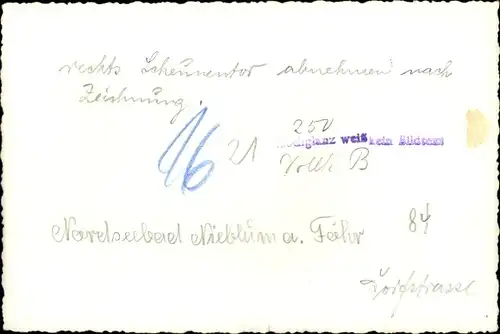 rechts Scheunentor abnehmen nach
Zeichnung.
16 21 250
Hochglanz weiß kein Bildtext
B
Nordseebad Nieblum a. Föhr 84
Dorfstrasse